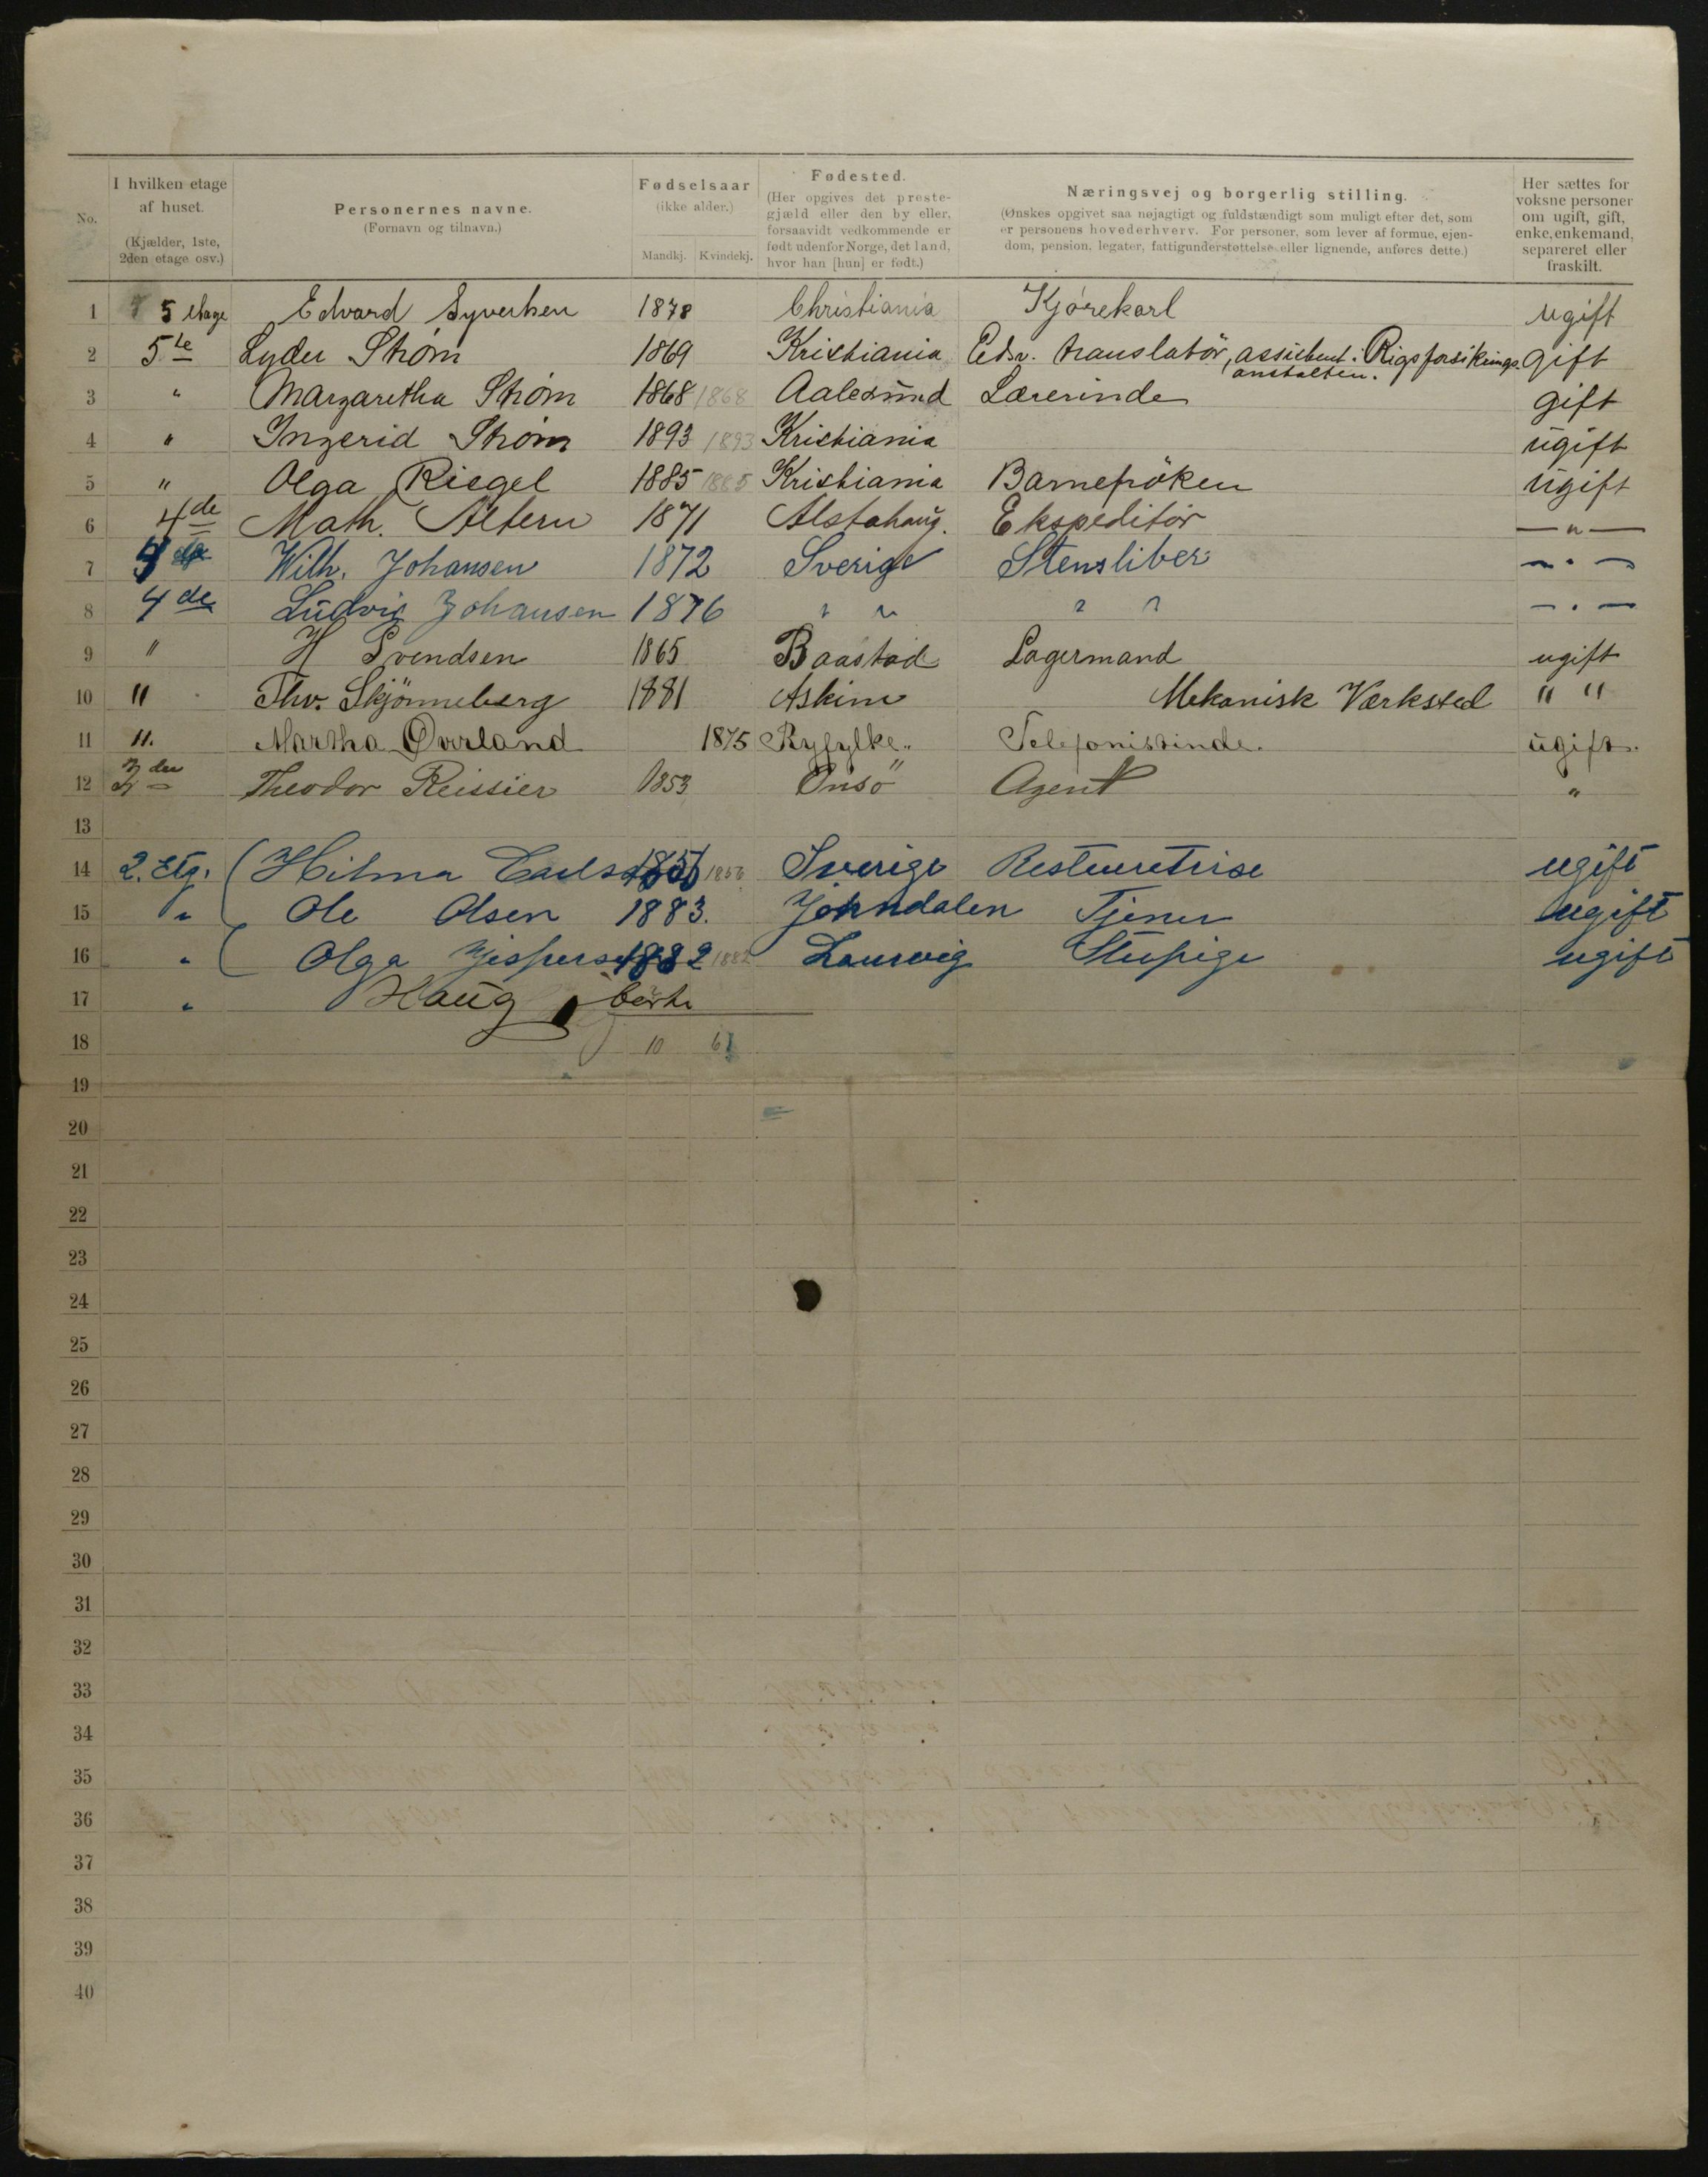 No.
I hvilken etage af huset. (Kjælder, 1ste, 2den etage osv.)
Personernes navne. (Fornavn og tilnavn.)
Fødselsaar (ikke alder.) Mandkj. Kvindekj.
Fødested. (Her opgives det prestegjæld eller den by eller, forsaavidt vedkommende er født udenfor Norge, det land, hvor han [hun] er født.)
Næringsvej og borgerlig stilling. (Ønskes opgivet saa nøjagtigt og fuldstændigt som muligt efter det, som er personens hovederhverv. For personer, som lever af formue, ejendom, pension, legater, fattigunderstøttelse eller lignende, anføres dette.)
Her sættes for voksne personer om ugift, gift, enke, enkemand, separeret eller fraskilt.
1 5 etage Edvard Syvertsen 1878 Christiania Kjørekarl ugift
2 5te Lyder Strøm 1869 Kristiania Edsv. translatör, assistent i Rigsforsikrings- gift
anstalten.
3 " Margaretha Strøm 1868 1868 Aalesund Lærerinde gift
4 " Ingerid Strøm 1893 1893 Kristiania ugift
5 " Olga Riegel 1885 1885 Kristiania Barnefröken ugift
6 4de Math. Altern 1871 Alstahaug. Ekspeditör — " —
7 Wilh. Johansen 1872 Sverige Stensliber — " —
8 4de Ludvig Johansen 1876 " " " " — " —
9 " H Svendsen 1865 Baastad Lagermand ugift
10 " Thv. Skjönneberg 1881 Askim Mekanisk Værksted " "
11 11. Martha Overland 1875 Ryfylke.. Telefonistinde. ugift.
12 Theodor Reissier 1853 Onsö Agent "
13
14 2. Etg. Hilma Carlsson 1856 1856 Sverige Restauretrise ugift
15 " Ole Olsen 1883. Jonndalen Tjener ugift
16 " Olga Jespersen 1882 1882 Laurvig Stuepige ugift
17 " Haug
18 10 6
19
20
21
22
23
24
25
26
27
28
29
30
31
32
33
34
35
36
37
38
39
40